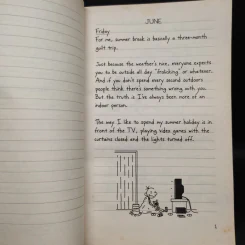 JUNE
Friday
For me, summer break is basically a three-month
guilt trip.
Just because the weather's nice, everyone expects
you to be outside all day "frolicking" or whatever.
And if you don't spend every second outdoors
people think there's something wrong with you.
But the truth is I've always been more of an
indoor person.
The way I like to spend my summer holiday is in
front of the TV, playing video games with the
curtains closed and the lights turned off.
1